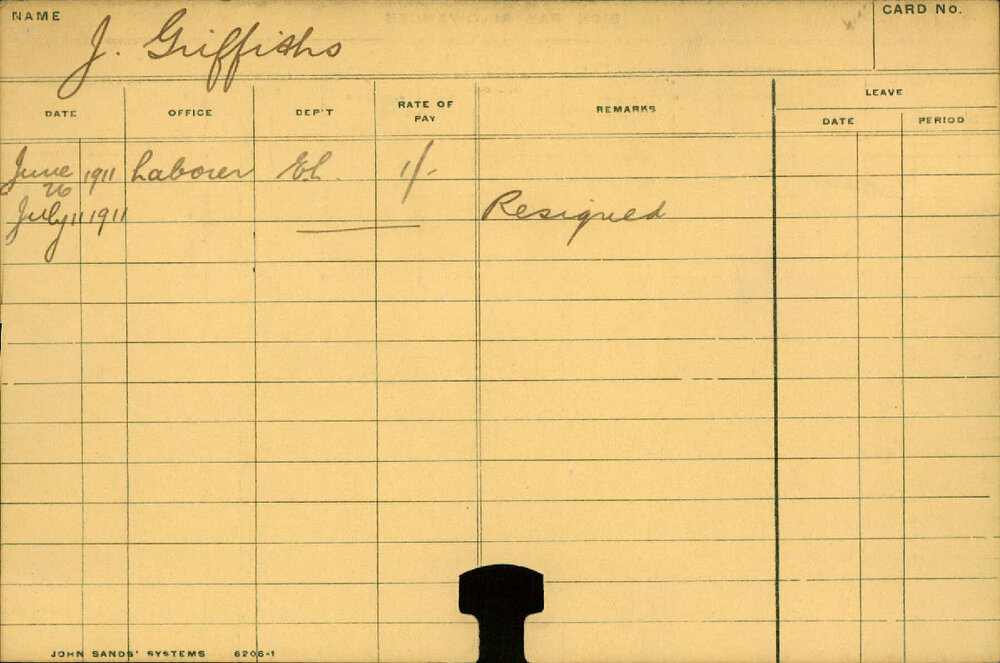 NAME
J. Griffiths
CARD No.
DATE OFFICE DEP'T RATE OF PAY REMARKS LEAVE
DATE PERIOD
June 26 1911 Laborer El. 1/-
July 11 1911 Resigned
JOHN SANDS' SYSTEMS 6206-1